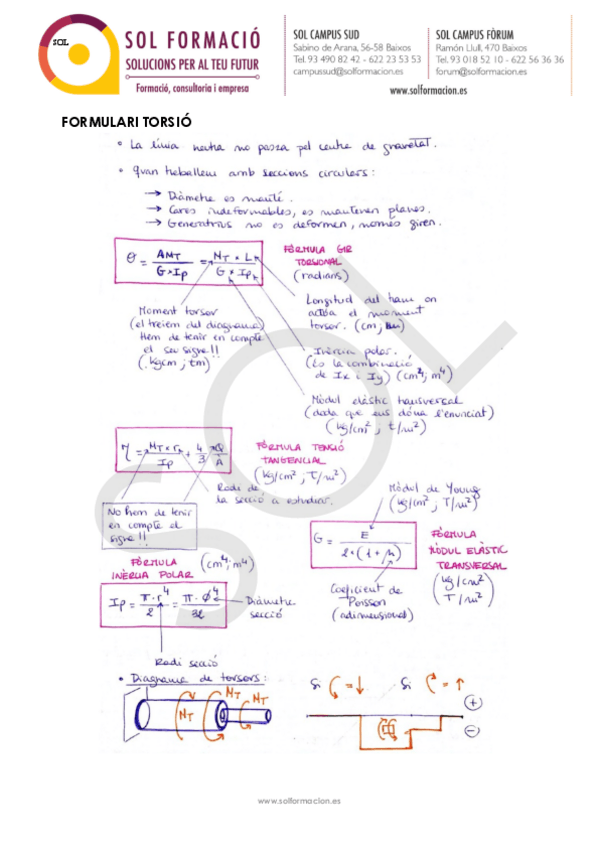 SOL
SOL FORMACIÓ
SOLUCIONS PER AL TEU FUTUR
Formació, consultoria i empresa
SOL CAMPUS SUD
Sabino de Arana, 56-58 Baixos
Tel. 93 490 82 42 - 622 23 53 53
campussud@solformacion.es
SOL CAMPUS FÒRUM
Ramón Llull, 470 Baixos
Tel. 93 018 52 10 - 622 56 36 36
forum@solformacion.es
www.solformacion.es
FORMULARI TORSIÓ
• La línia neutra no passa pel centre de gravetat.
• Quan treballem amb seccions circulars:
→ Diàmetre es manté.
→ Cares indeformables, es mantenen planes.
→ Generatrius no es deformen, només giren.
θ = AMT / G × Ip = MT × L / G × Ip
FÒRMULA GIR
TORSIONAL
(radians)
Moment torsor
(el treiem del diagrama)
Hem de tenir en compte
el seu signe!!
(kgcm ; tm)
Longitud del tram on
actúa el moment
torsor. (cm; m)
Inèrcia polar.
(és la combinació
de Ix i Iy) (cm⁴; m⁴)
Mòdul elàstic transversal
(dada que ens dóna l'enunciat)
(kg/cm² ; t/m²)
τ = MT × r / Ip + 4/3 Q/A
FÒRMULA TENSIÓ
TANGENCIAL
(kg/cm² ; T/m²)
Radi de
la secció a estudiar.
No hem de tenir
en compte el
signe!!
Mòdul de Young
(kg/cm² ; T/m²)
G = E / 2 · (1 + μ)
FÒRMULA
MÒDUL ELÀSTIC
TRANSVERSAL
(kg/cm²
T/m²)
Coeficient de
Poisson
(adimensional)
FÒRMULA
INÈRCIA POLAR
(cm⁴; m⁴)
Ip = π · r⁴ / 2 = π · Ø⁴ / 32
Diàmetre
secció
Radi secció
• Diagrama de torsors:
MT MT MT
Si = ↓ Si = ↑
+
-
SOL
www.solformacion.es